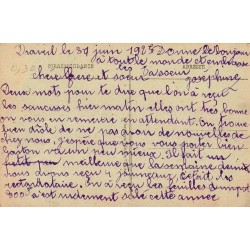 Draveil le 30 juin 1925 Donne le bonjour
à tout le monde et embrasse
CORRESPONDANCE les ADRESSE
chere frere et soeur Ta soeur
josephine
Deux mots pour te dire que l'on a reçu
les saucisses hier matin elles ont tres bonne
on vous en remercie en attendant. On trouve
bien drole de ne pas avoir de nouvelle de
chez vous, j'espere que vous vous portez bien
Gaston va un peu mieux. Il fait un
petit peu meilleur que la semaine derniere
nous avons reçu 4 journeaux c'etait les
retardataire. On a reçu les feuilles d'impot
800 c'est rudement sale cette année